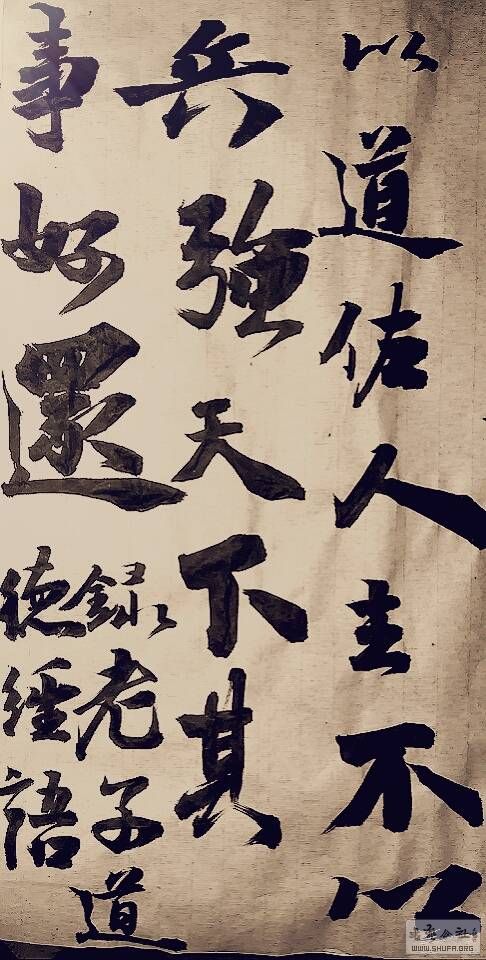 以道佐人主不以
兵強天下其
事好還
録老子道
德經語
WWW.SHUFA.ORG